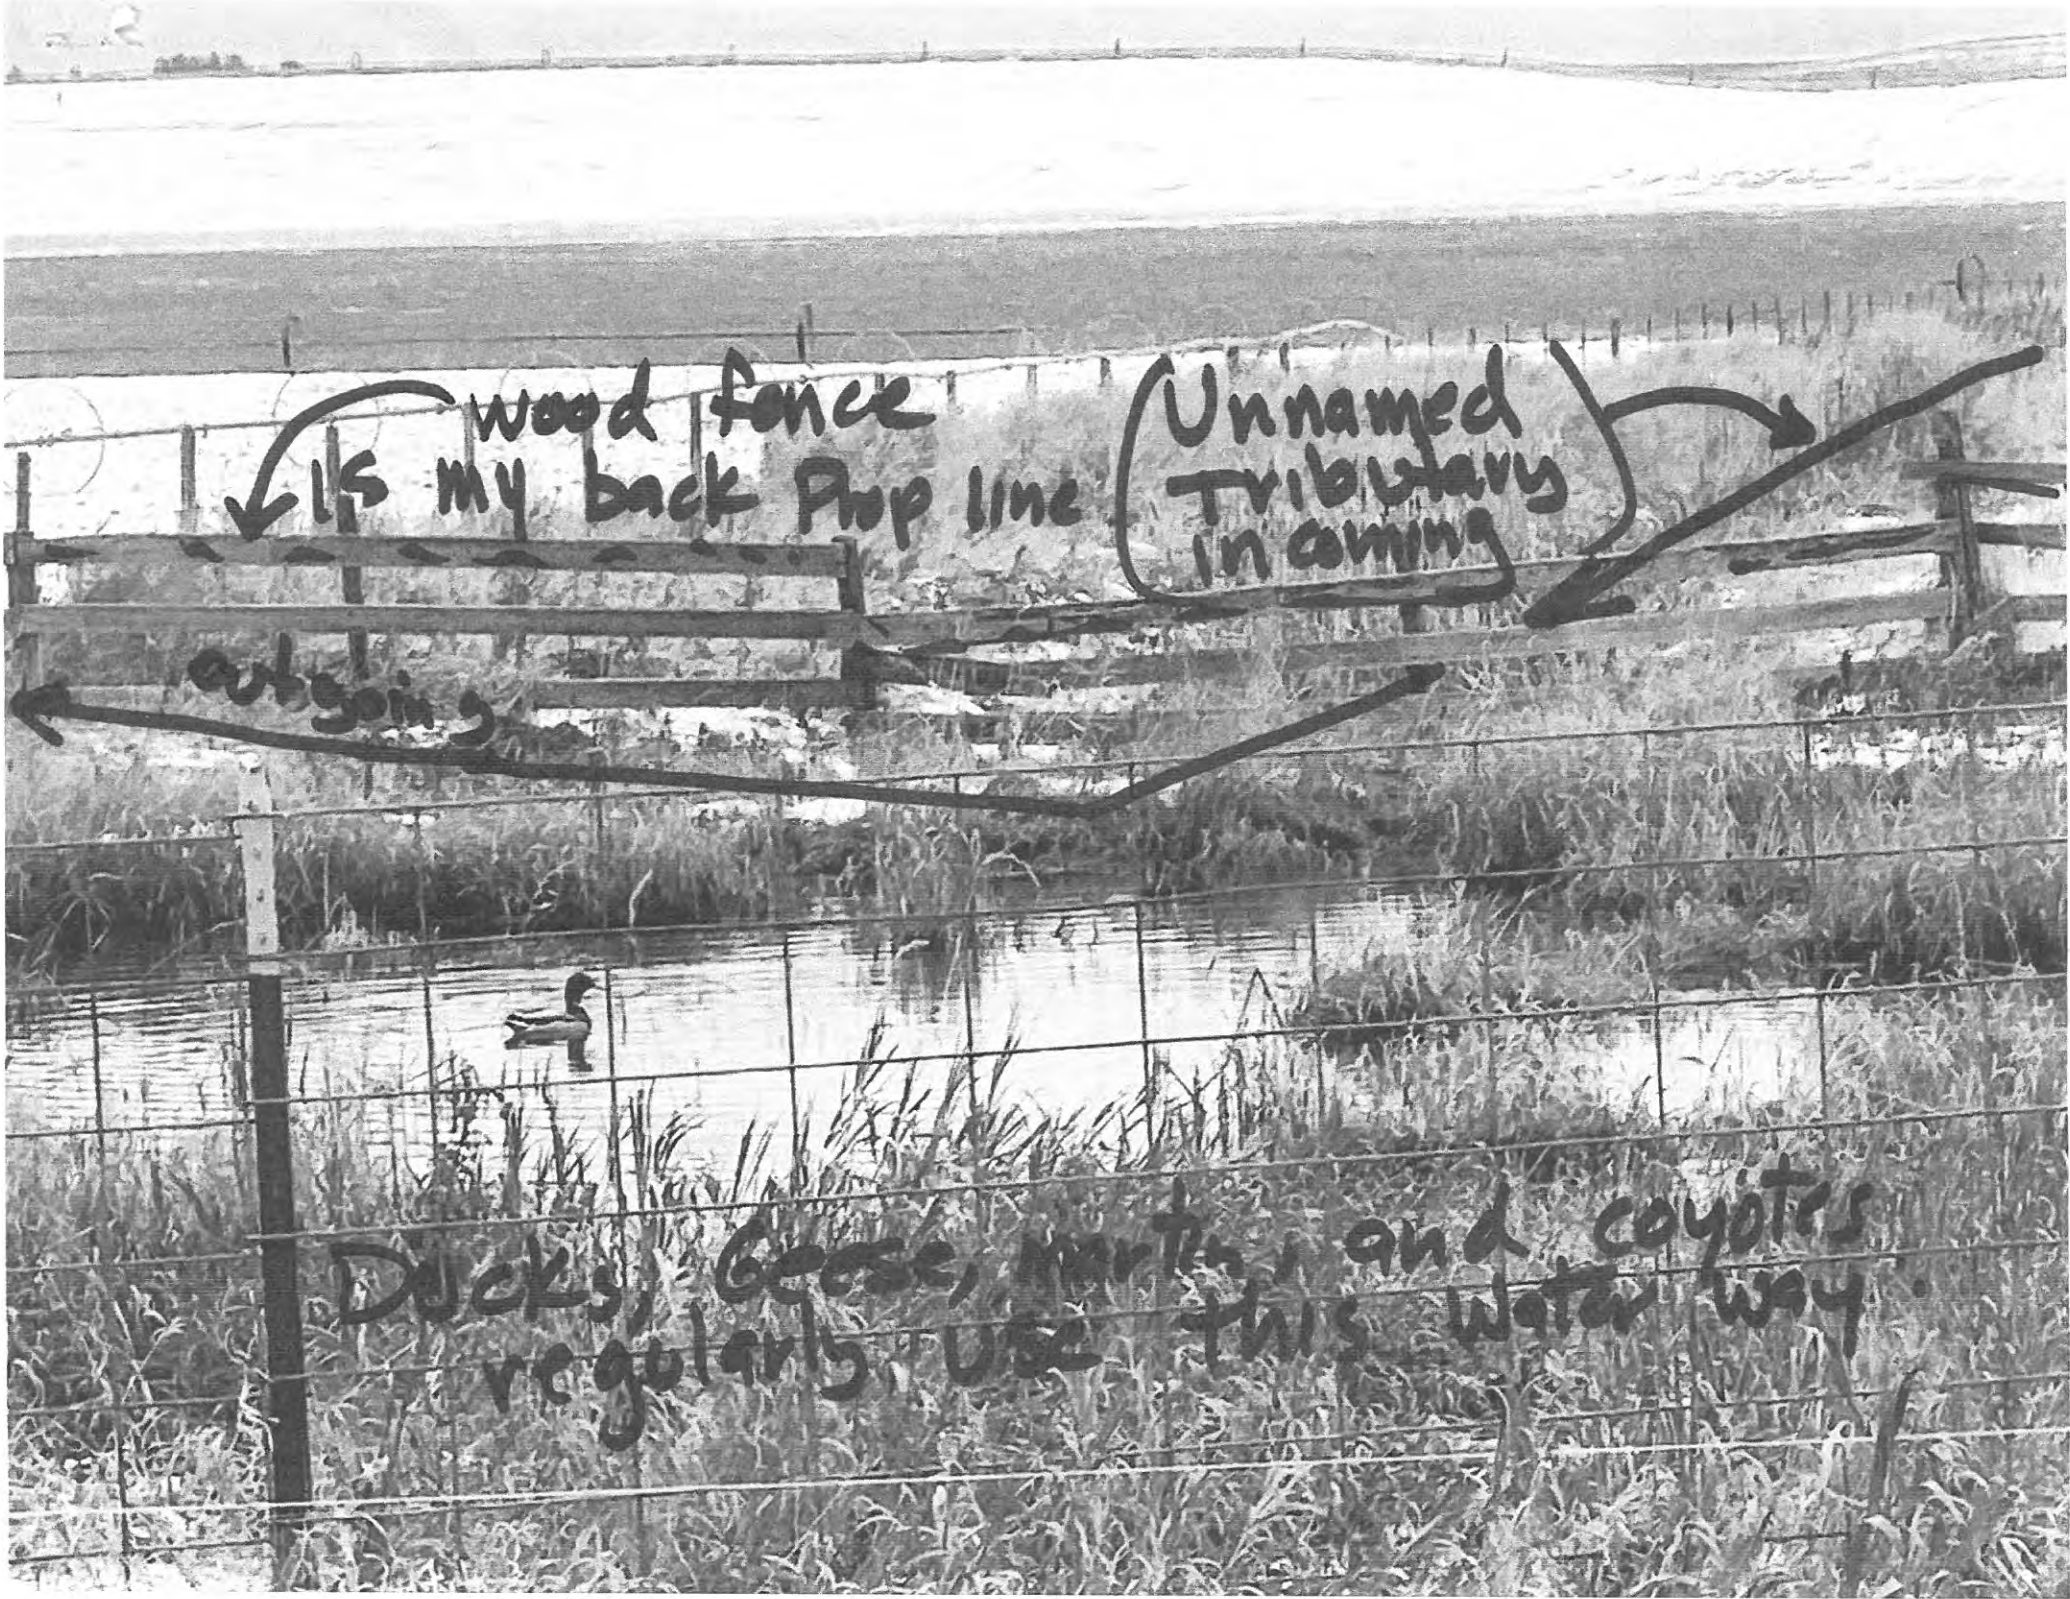 wood fence
is my back Prop line
(Unnamed
Tributary
in coming)
outgoing
Ducks, Geese, Martes, and coyotes
regularly use this water way.